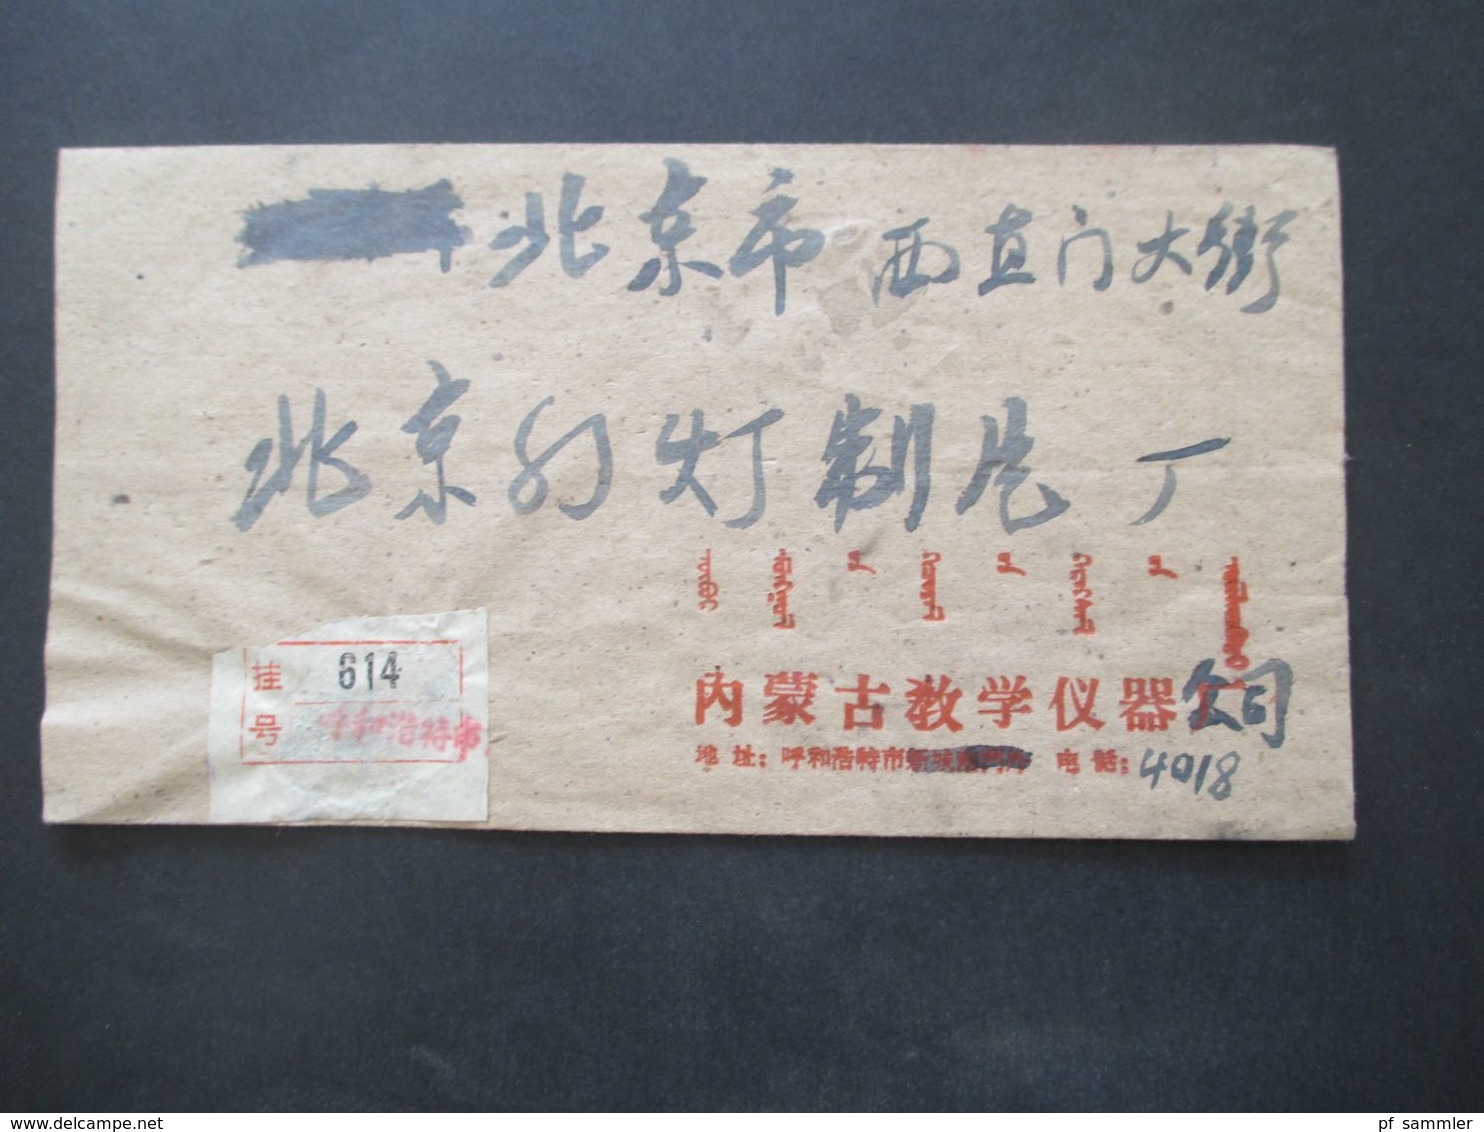 北京市 西直门大街
北京幻灯制片厂
挂号 614
呼和浩特市
内蒙古教学仪器公司
地址：呼和浩特市新城 电话：4018
pf_sammler